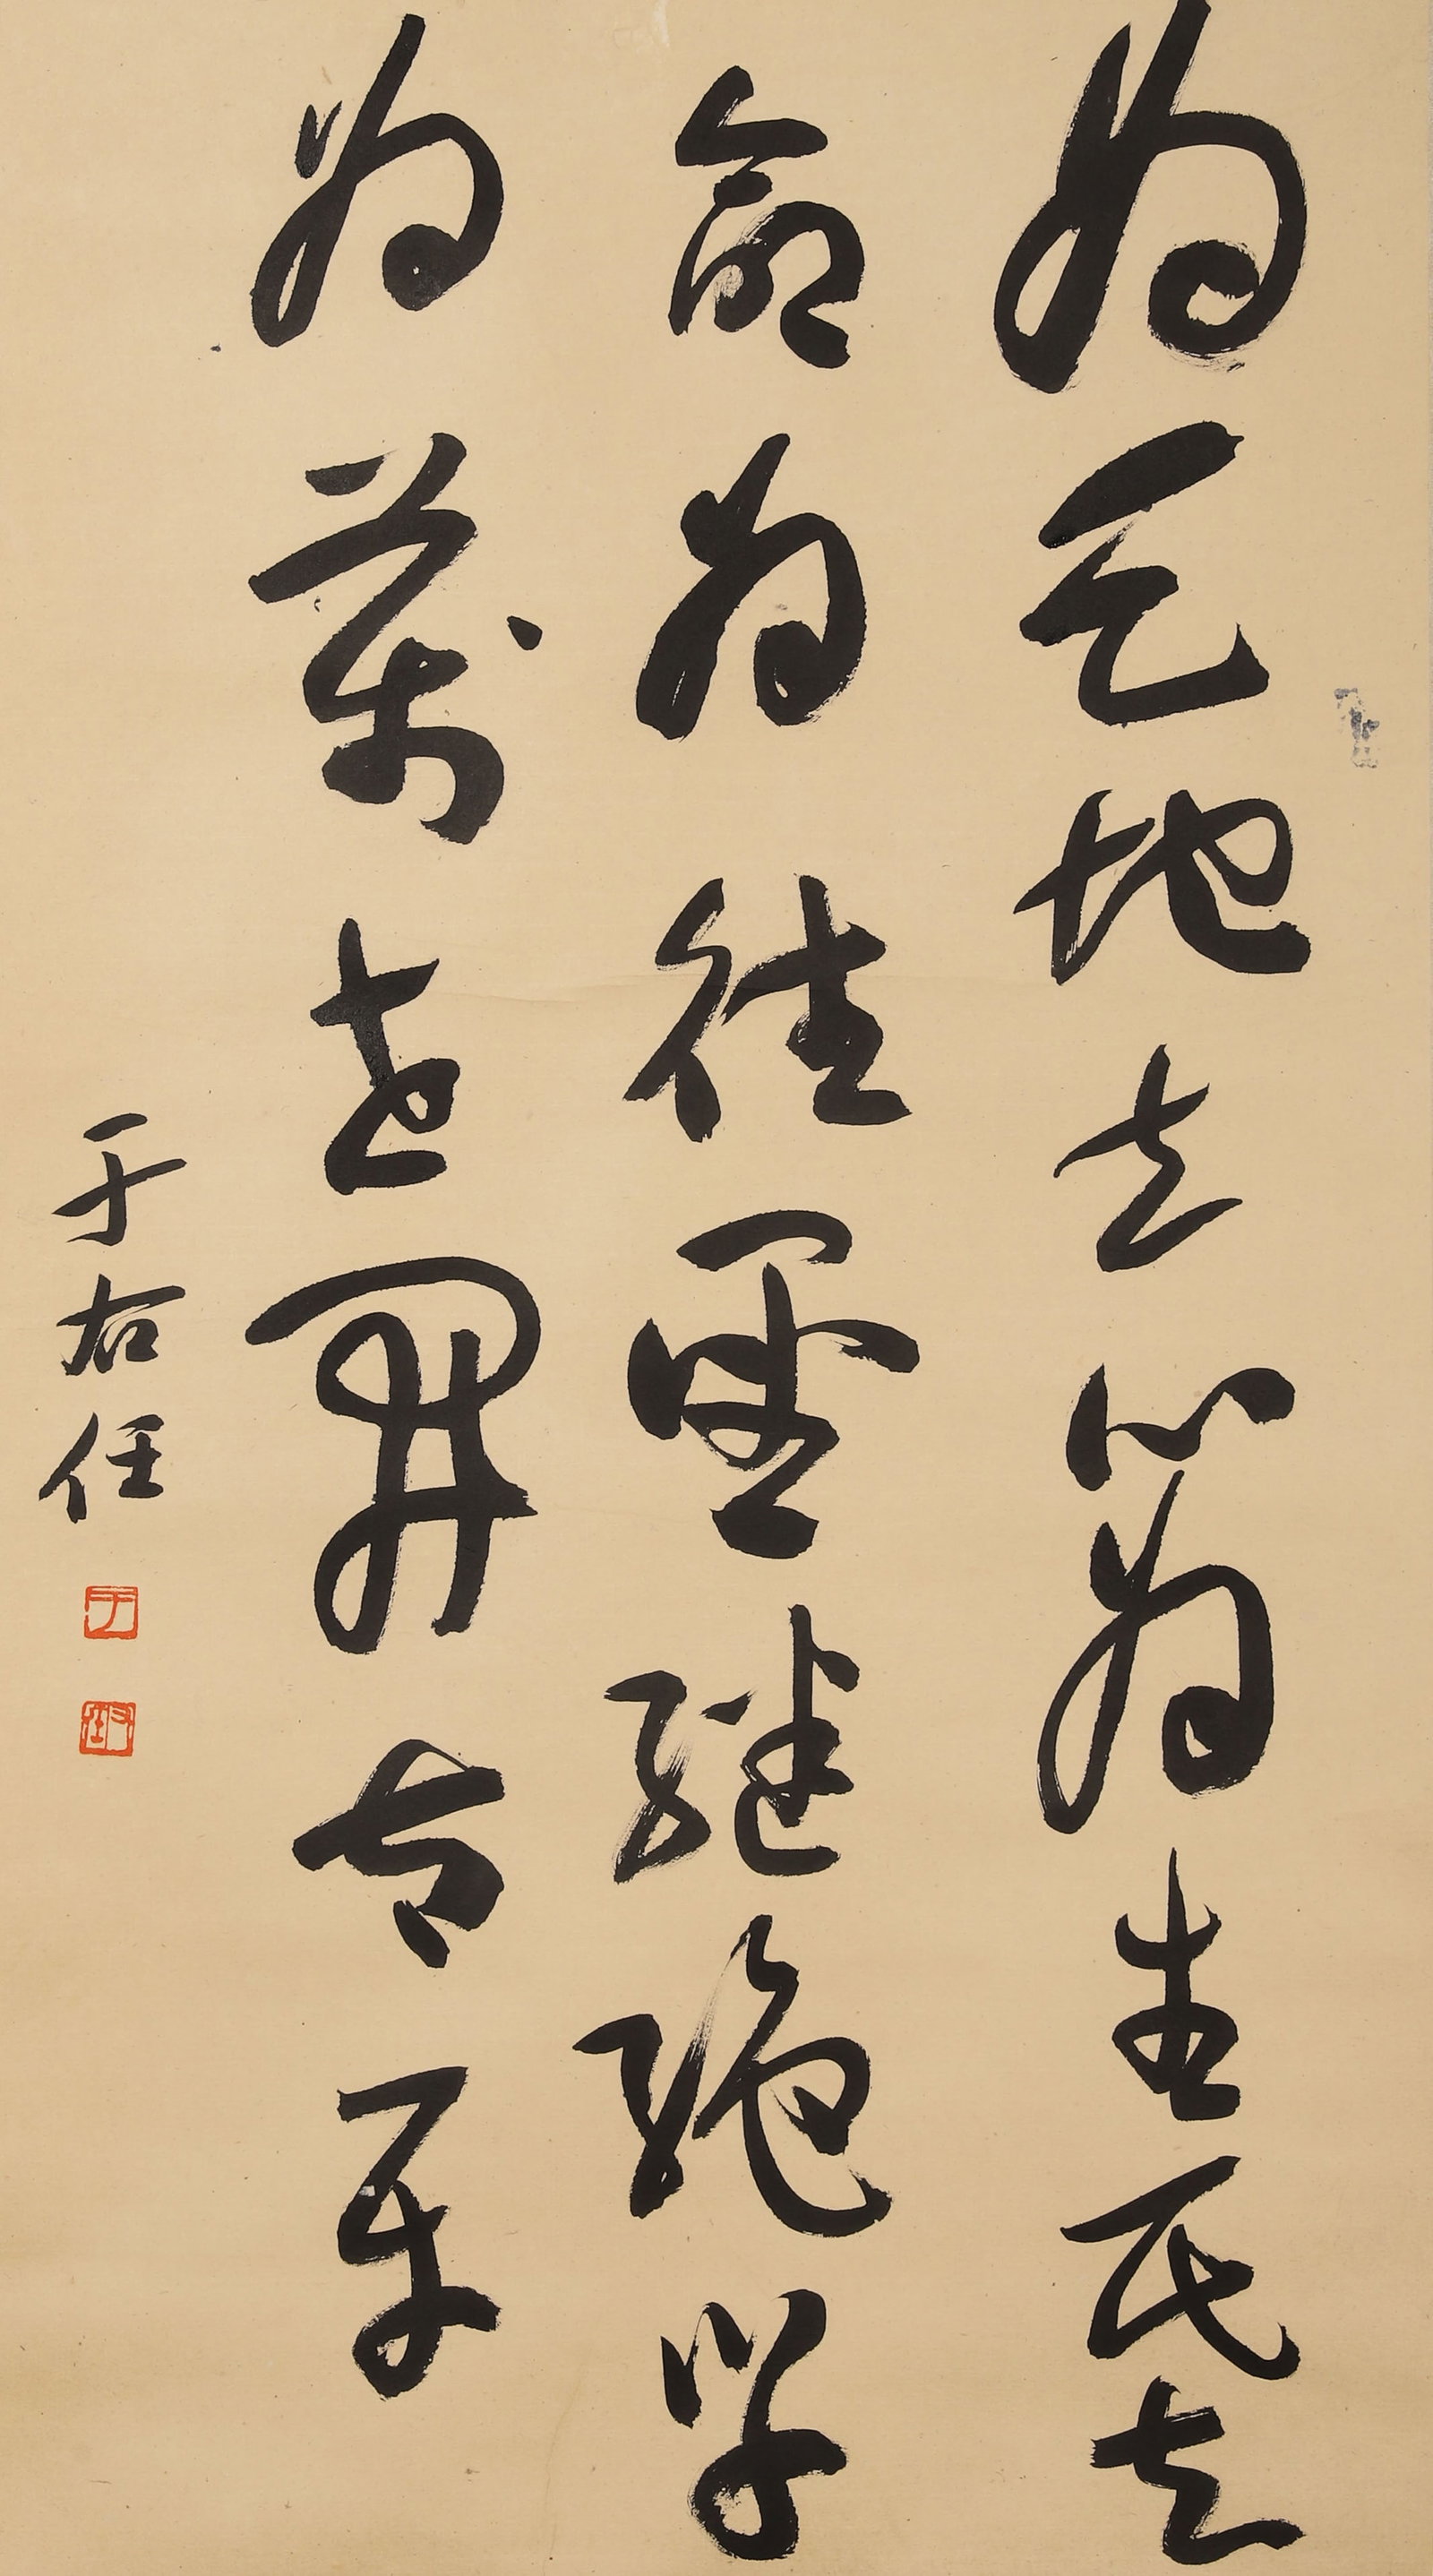 為天地立心為生民立
命為往聖繼絕學
為萬世開太平
于右任
于
右任